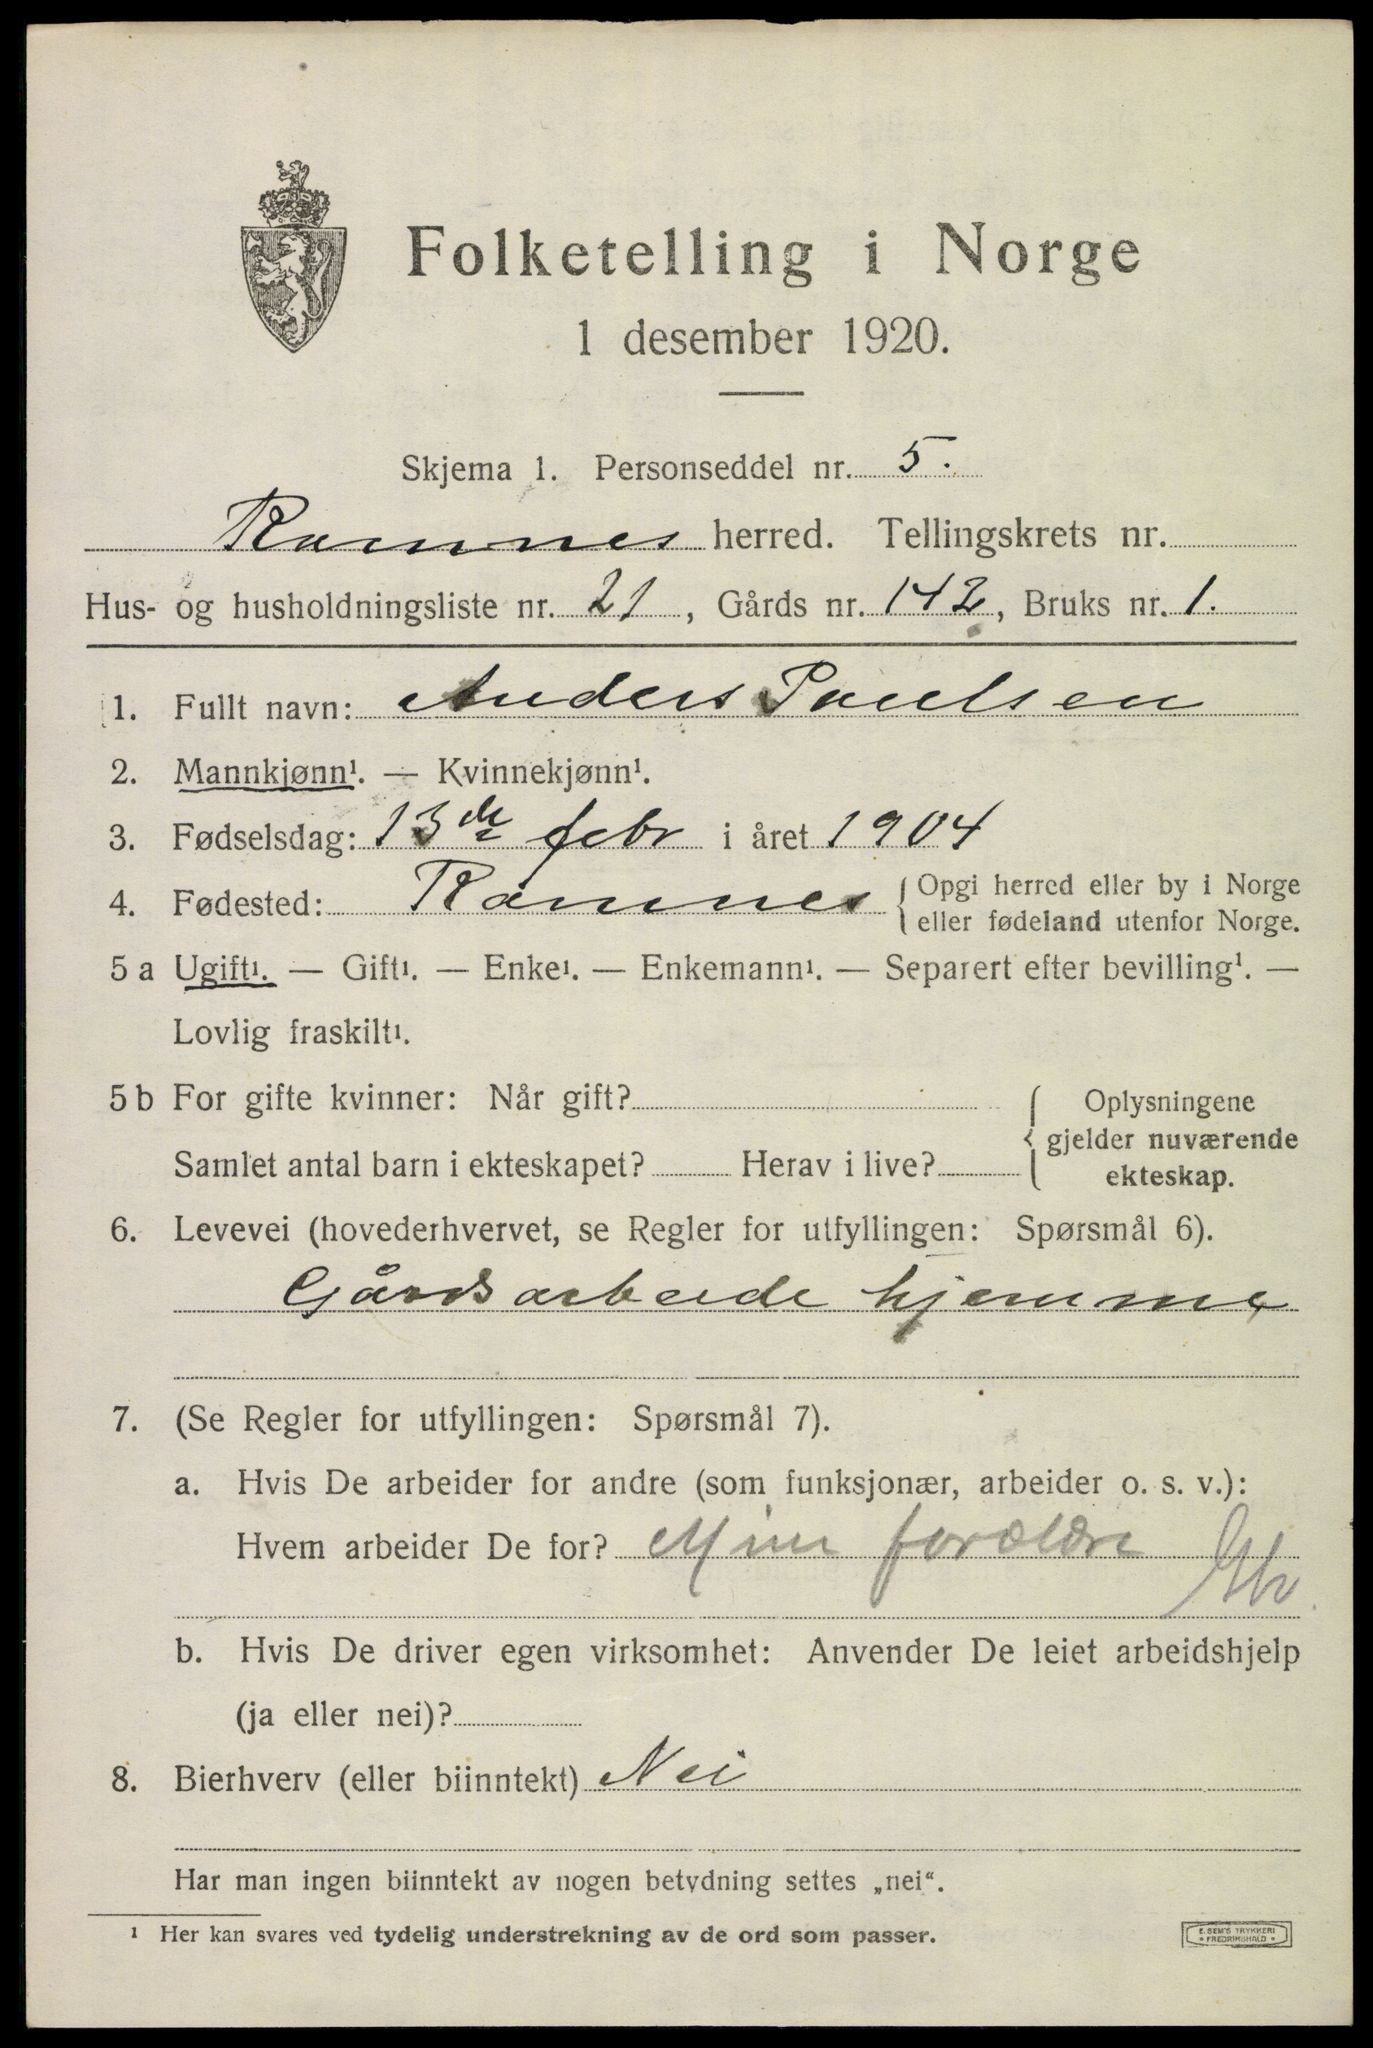 Folketelling i Norge
1 desember 1920.
Skjema 1. Personseddel nr. 5.
Ramnes herred. Tellingskrets nr.
Hus- og husholdningsliste nr. 21, Gårds nr. 142, Bruks nr. 1.
1. Fullt navn: Anders Paulsen
2. Mannkjønn¹. — Kvinnekjønn¹.
3. Fødselsdag: 13de febr i året 1904
4. Fødested: Ramnes { Opgi herred eller by i Norge
eller fødeland utenfor Norge.
5 a Ugift¹. — Gift¹. — Enke¹. — Enkemann¹. — Separert efter bevilling¹. —
Lovlig fraskilt¹.
5 b For gifte kvinner: Når gift?
Samlet antal barn i ekteskapet? Herav i live?
{ Oplysningene
gjelder nuværende
ekteskap.
6. Levevei (hovederhvervet, se Regler for utfyllingen: Spørsmål 6).
Gårdsarbeide hjemme
7. (Se Regler for utfyllingen: Spørsmål 7).
a. Hvis De arbeider for andre (som funksjonær, arbeider o. s. v.):
Hvem arbeider De for? Mine forældre
b. Hvis De driver egen virksomhet: Anvender De leiet arbeidshjelp
(ja eller nei)?
8. Bierhverv (eller biinntekt) Nei
Har man ingen biinntekt av nogen betydning settes „nei“.
¹ Her kan svares ved tydelig understrekning av de ord som passer.
E. SEM'S TRYKKERI
* FREDRIKSHALD *